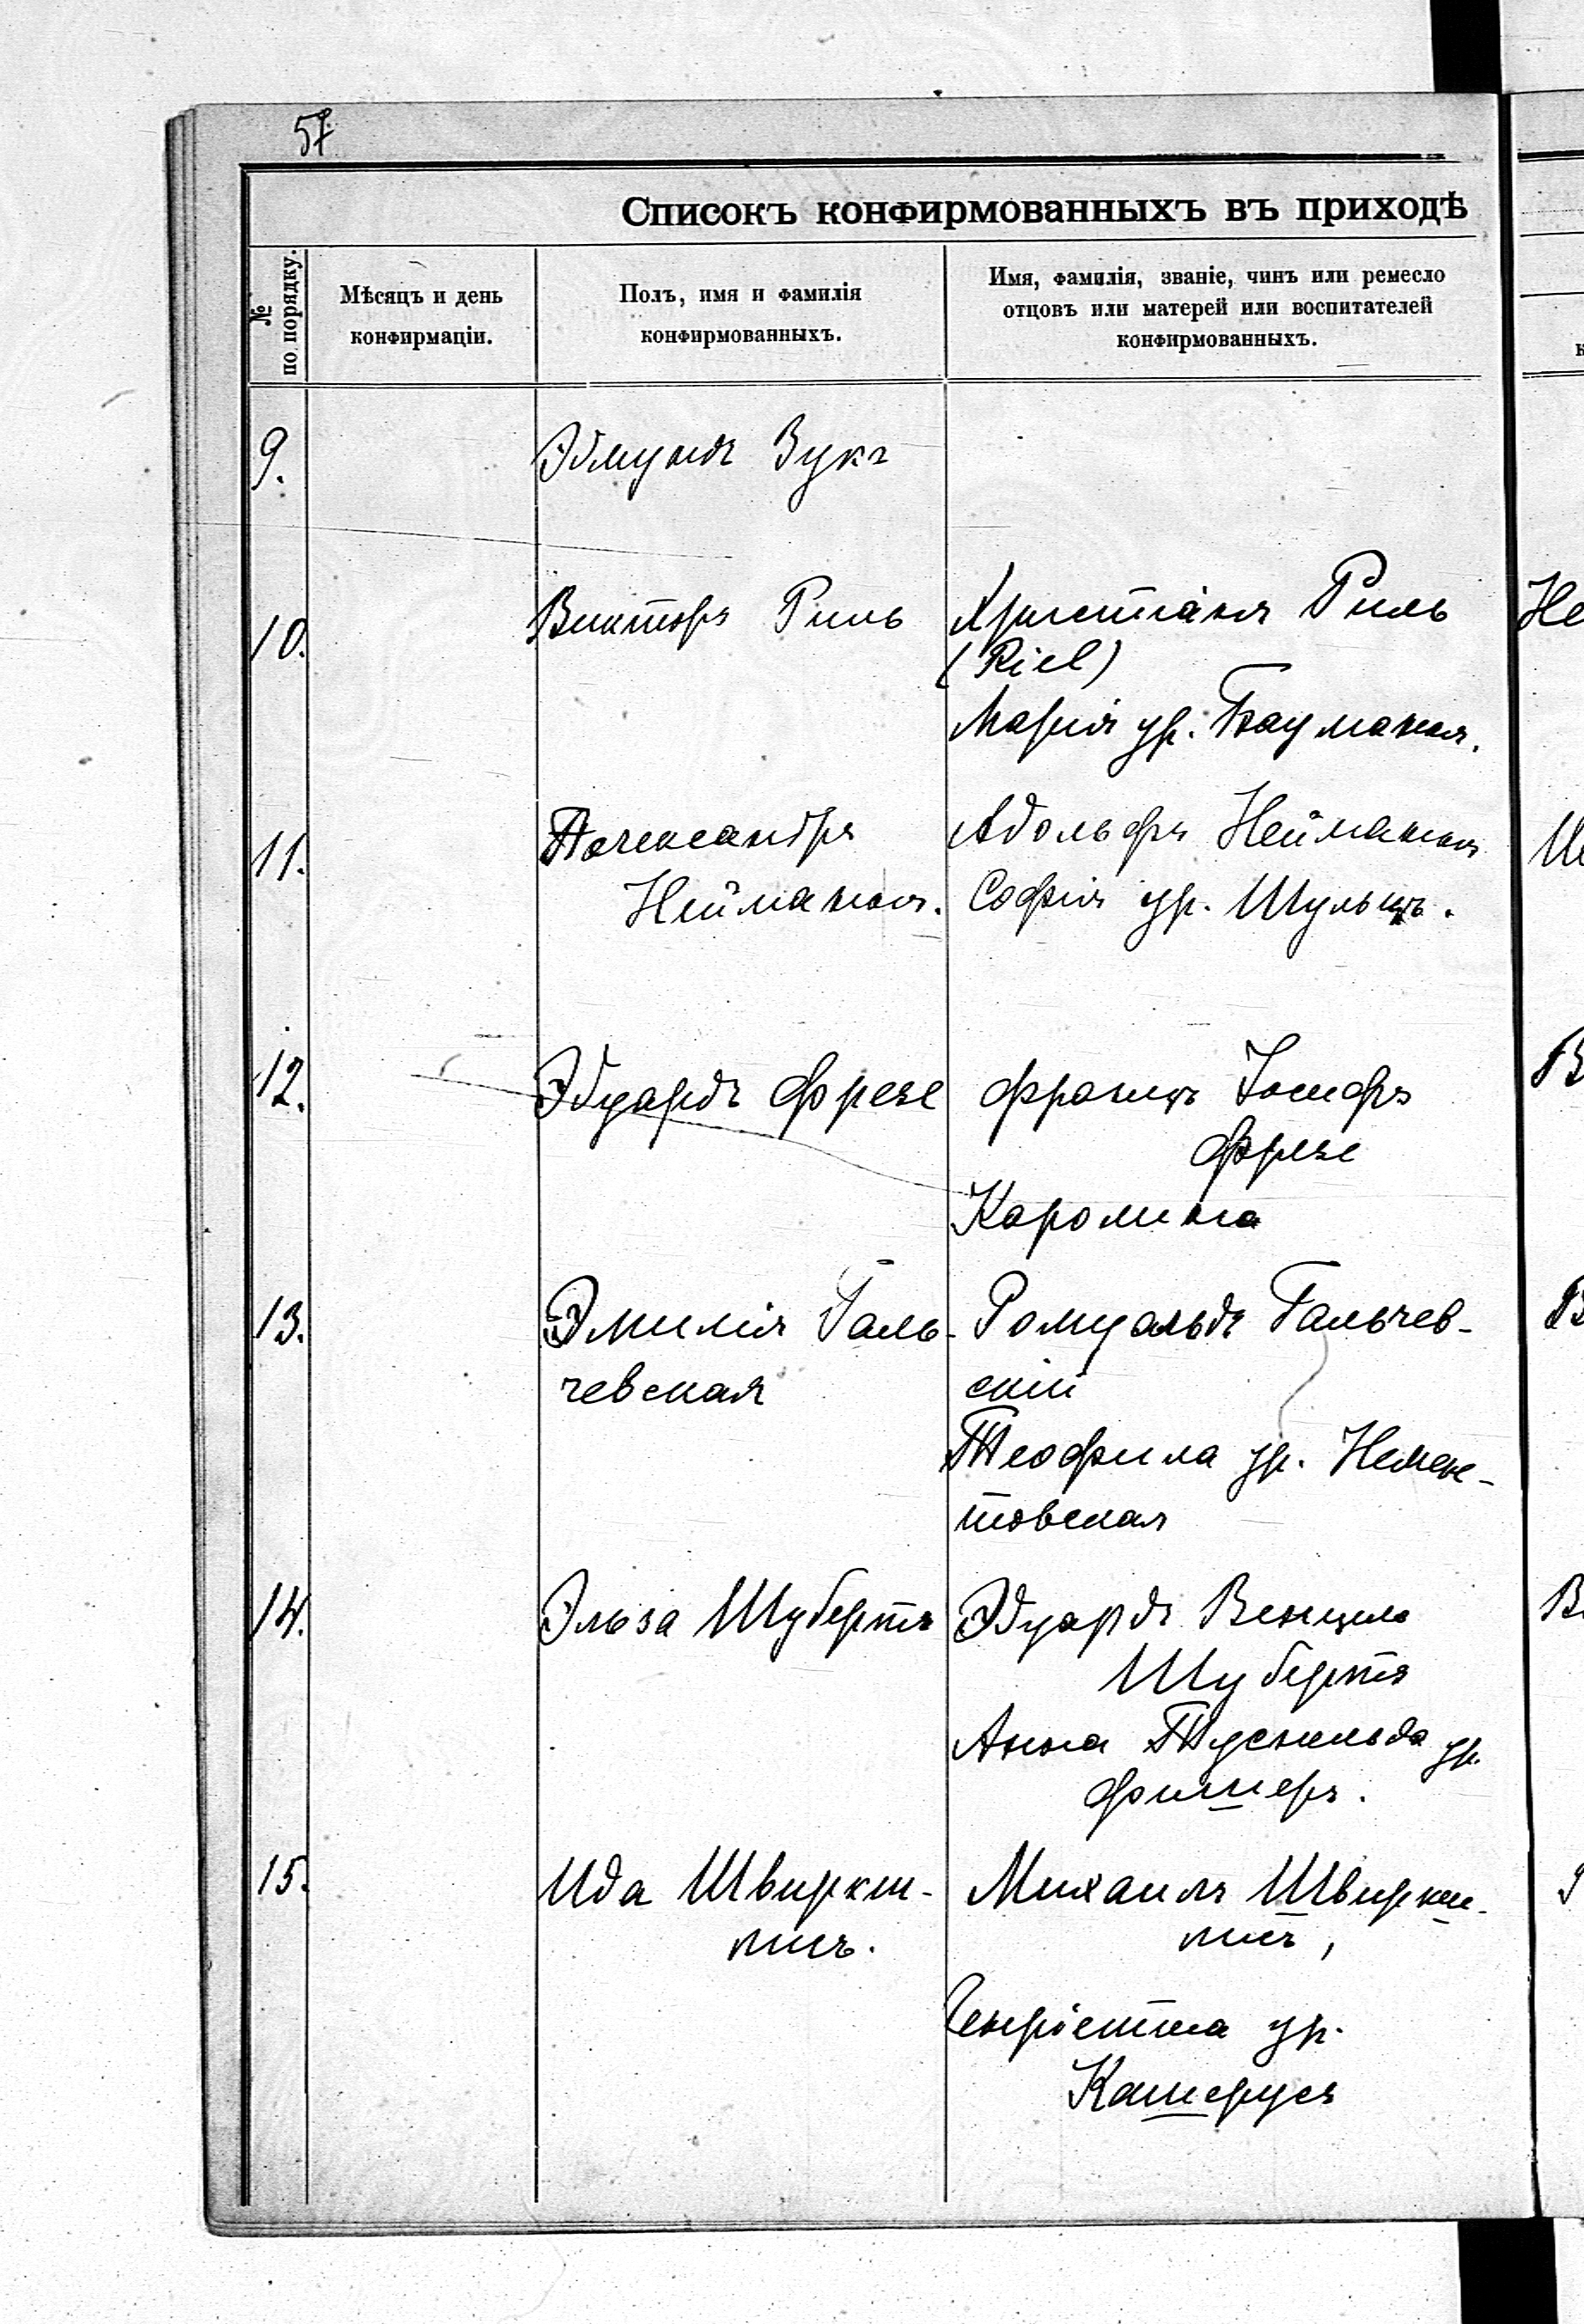 57
Списокъ конфирмованныхъ въ приходѣ
№ по порядку.
Мѣсяцъ и день
конфирмаціи.
Полъ, имя и фамилія
конфирмованныхъ.
Имя, фамилія, званіе, чинъ или ремесло
отцовъ или матерей или воспитателей
конфирмованныхъ.
9.
Эдмундъ Вукъ
10.
Викторъ Риль
Христіанъ Риль
(Riel)
Марія ур. Бауманнъ.
11.
Александръ
Нейманнъ.
Адольфъ Нейманнъ
Софія ур. Шульцъ.
12.
Эдуардъ Фрезе
Францъ Іосифъ
Фрезе
Каролина
13.
Эмилія Галь-
чевская
Ромуальдъ Гальчев-
скій
Теофила ур. Немен-
товская
14.
Эльза Шубертъ
Эдуардъ Венцель
Шубертъ
Анна Туснельда ур.
Фишеръ.
15.
Ида Швиркш-
нисъ.
Михаилъ Швиркш-
нисъ,
Генріетта ур.
Кашерусъ
Не
В
В